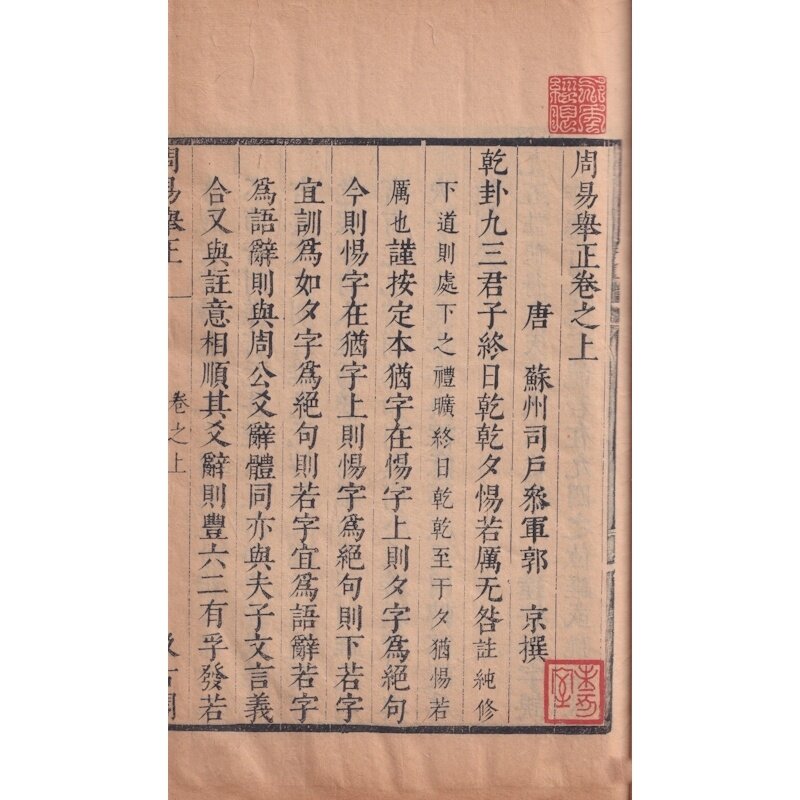 周易舉正卷之上
唐 蘇州司戶叅軍郭 京撰
乾卦九三君子終日乾乾夕惕若厲无咎註純修
下道則處下之禮曠終日乾乾至于夕猶惕若
厲也謹按定本猶字在惕字上則夕字爲絕句
今則惕字在猶字上則惕字爲絕句則下若字
宜訓爲如夕字爲絕句則若字宜爲語辭若字
爲語辭則與周公爻辭體同亦與夫子文言義
合又與註意相順其爻辭則豐六二有孚發若
周易舉正 一 卷之上